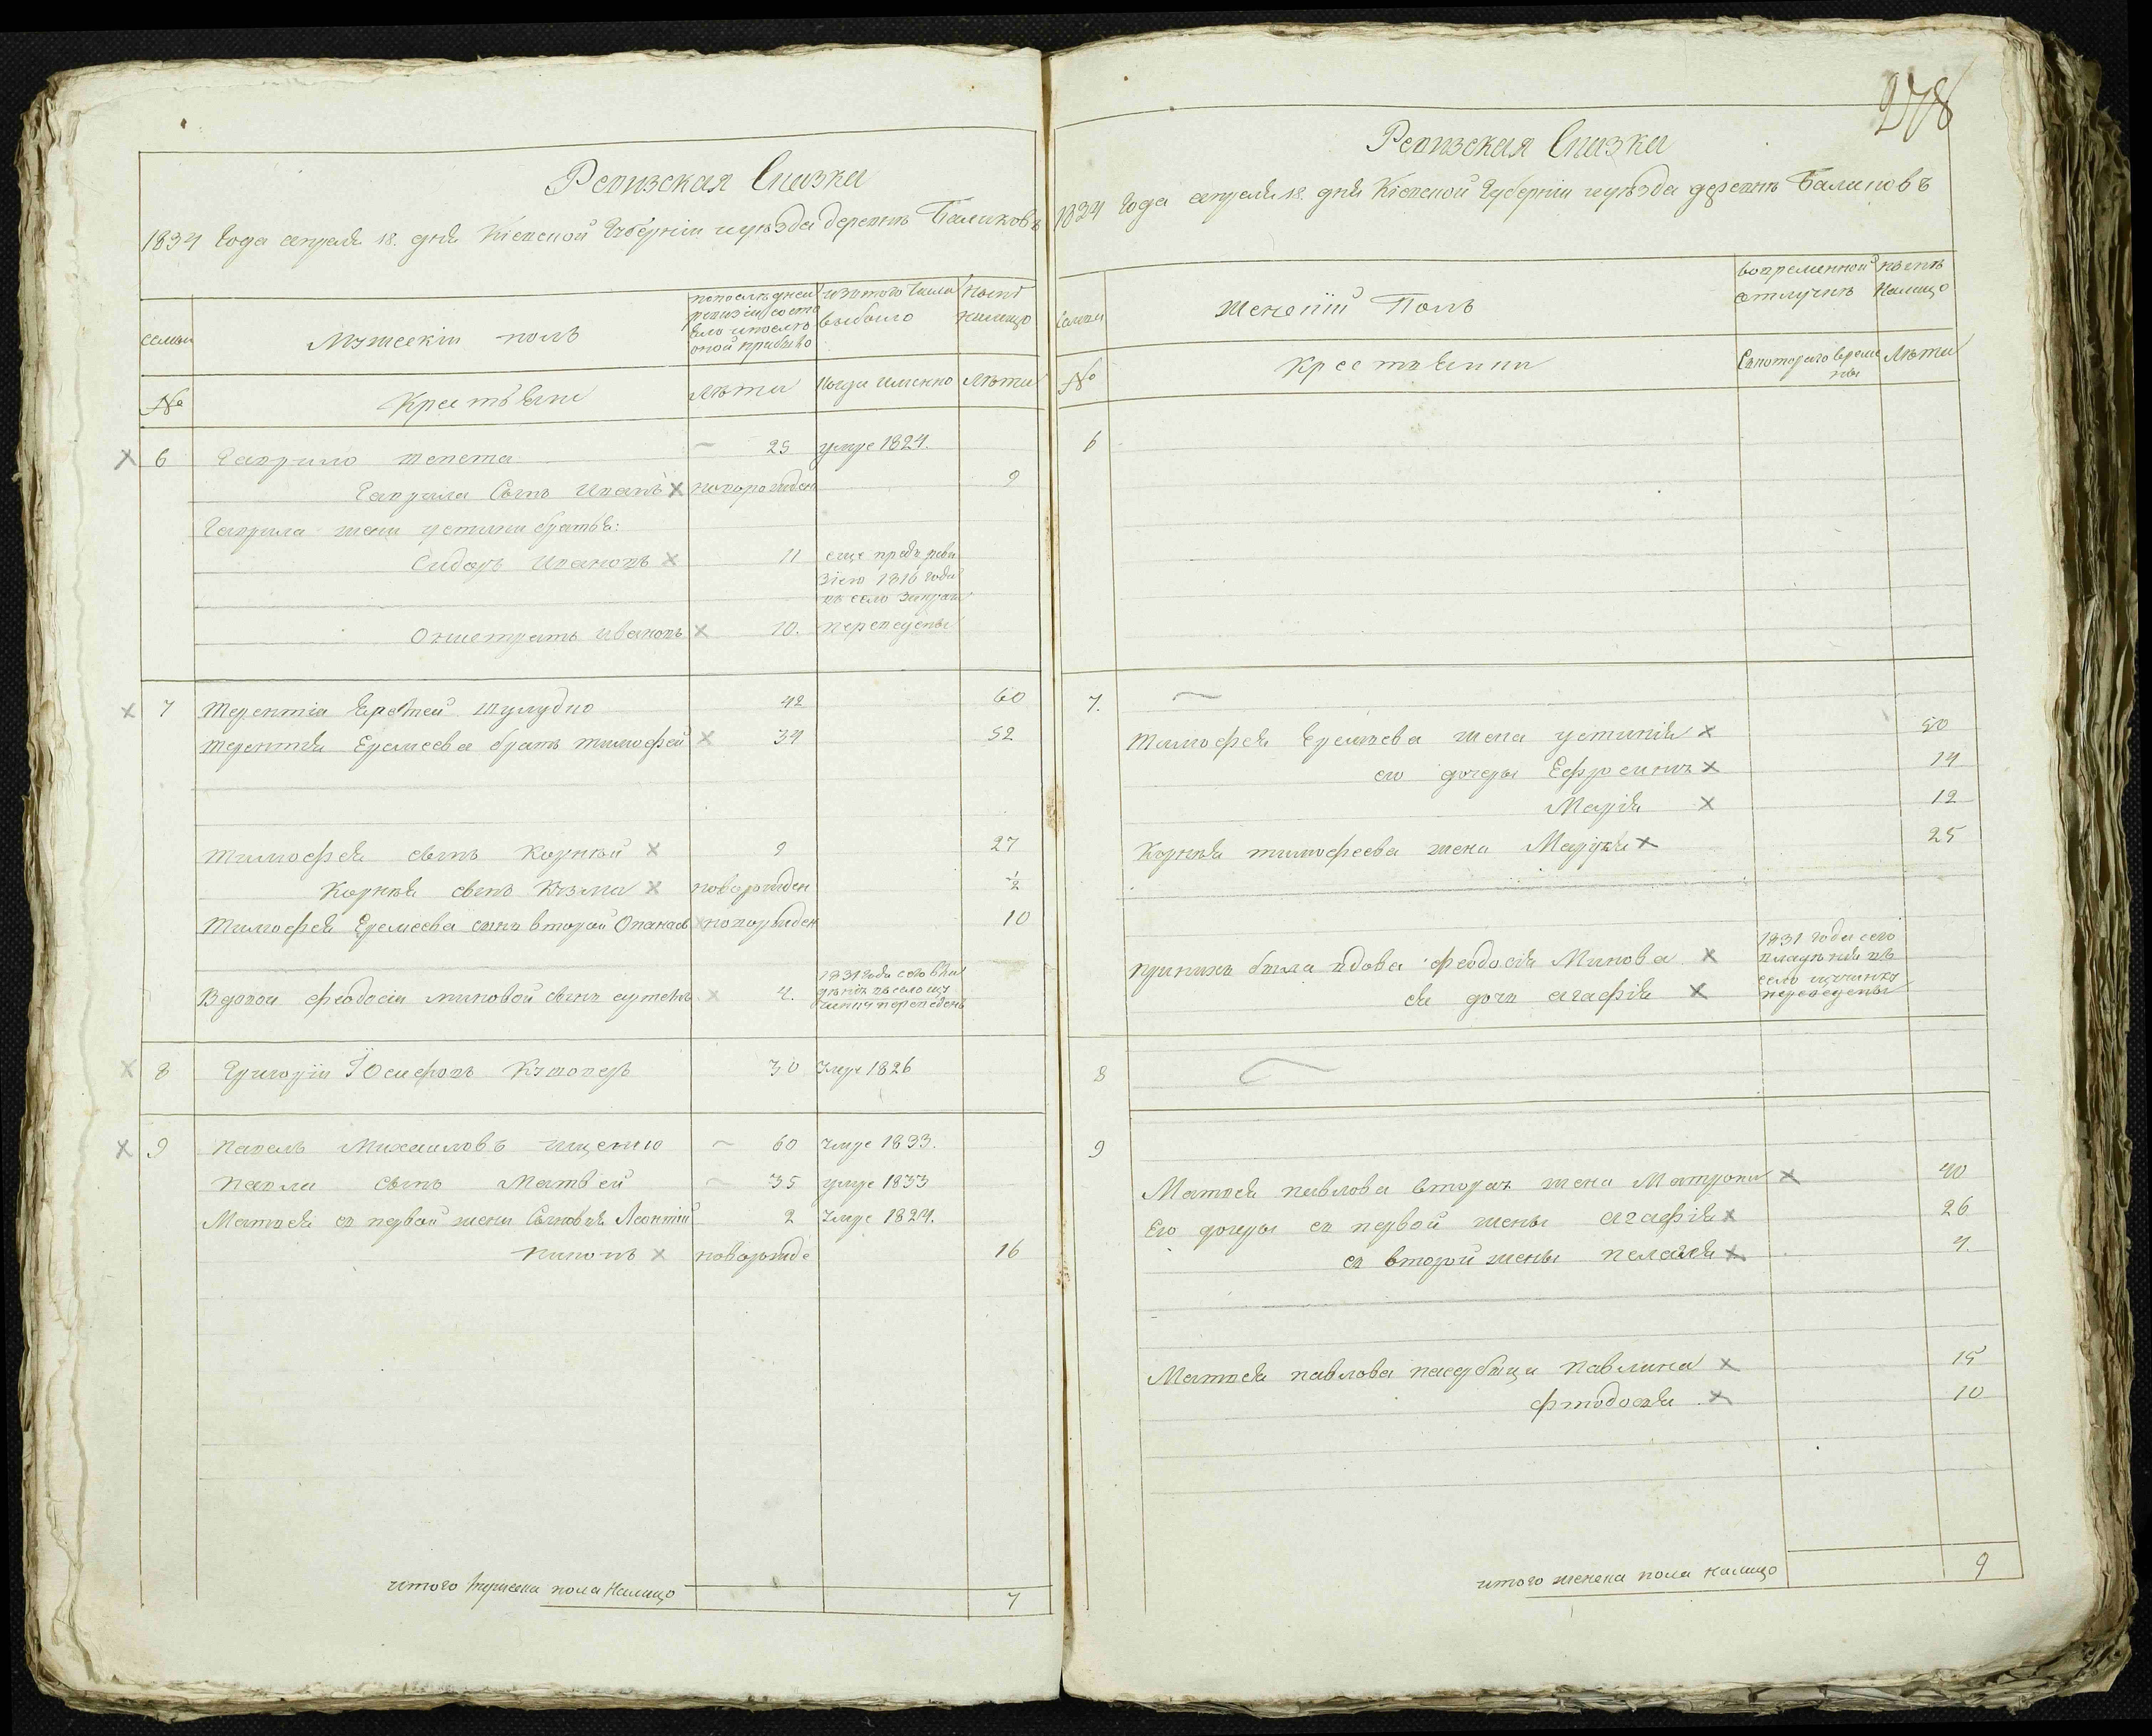 Ревизская Сказка
1834 года апреля 18. дня Кіевской Губерніи и уѣзда деревнѣ Баликовъ
семьи
Мужескій полъ
по последней ревизіи состояло и послѣ оной прибыло
изъ того числа выбыло
нынѣ налицо
№
Крестьяне
Лѣта
Когда именно
Лѣта
6 Гаврило 25 умре 1824.
Гаврила сынъ Иванъ новорожден 9
Гаврила жени Устини братья:
Сидоръ Ивановъ 11 еще предъ реви
зіею 1816 года
въ село
Онистратъ Ивановъ 10. переведены
7 Терентій Еремей Шулудко 42 60
Терентія Еремеева братъ Тимофей 34 52
Тимофея сынъ Корнѣй 9 27
Корнѣя сынъ Кузма новорожден ½
Тимофея Еремеева сынъ второй Опанасъ новорожден 10
Вдовои Феодосіи Миновой сынъ 4. 1831 года сего вла
дѣнія въ село
переведенъ
8 Григорій Іосифовъ 30 Умре 1826
9 Павелъ Михаиловъ Ищенко 60 Умре 1833.
Павла сынъ Матвей 35 умре 1833
Матвея съ первой жени Сыновья Леонтій 2 Умре 1824.
новорожде 16
итого мужеска пола налицо 7
278
Ревизская Сказка
1834 года апреля 18. дня Кіевской Губерніи и уѣзда деревнѣ Баликовъ
семьи
Женскій Полъ
во временной отлучкѣ
нынѣ налицо
№
Крестьянки
Съ котораго времени
Лѣта
6
7.
Тимофея Еремѣева жена Устинія 50
его дочеры Ефросинія 14
Марія 12
Корнѣя Тимофеева жена Марія 25
причиѣ была вдова Феодосія Минова 1831 года сего
владѣнія въ
ея дочь Агафія село
переведены
8
9
Матвея Павлова вторая жена Матрона 40
Его дочеры съ первой жены Агафія 26
съ второй жены Пелагея 4.
Матвея Павлова пасербица Павлина 15
Фтодосія 10
итого женска пола налицо 9